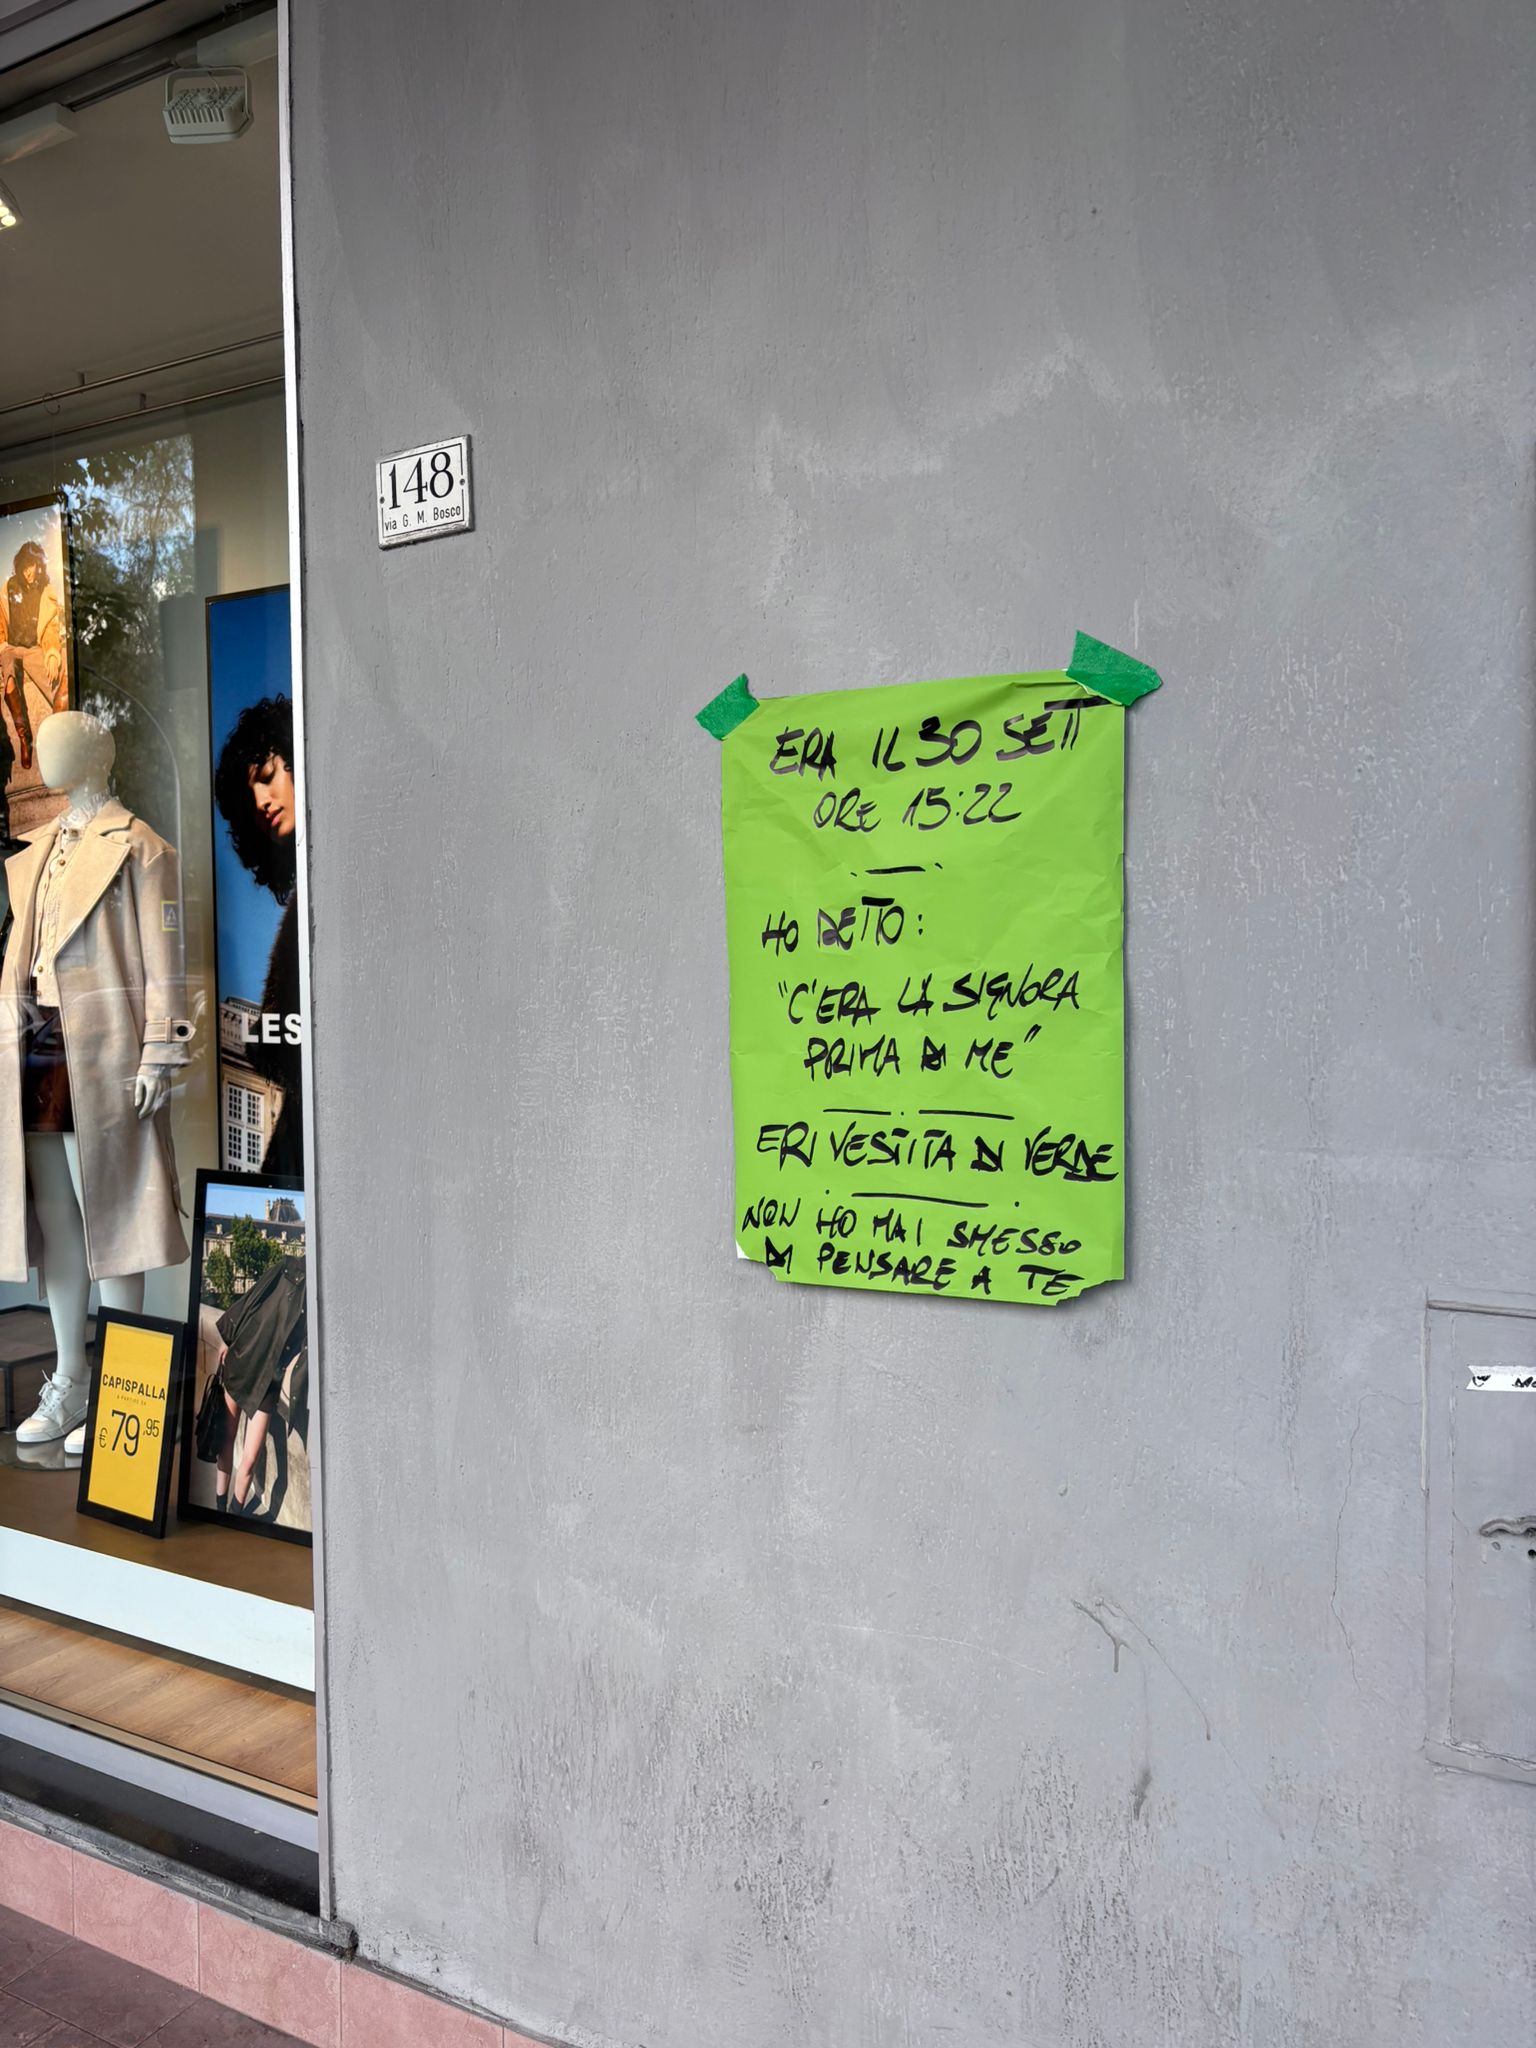 148
via G. M. Bosco
LES
CAPISPALLA
A PARTIRE DA
€ 79,95
ERA IL 30 SETT
ORE 15:22
HO DETTO:
"C'ERA LA SIGNORA
PRIMA DI ME"
ERI VESTITA DI VERDE
NON HO MAI SMESSO
DI PENSARE A TE